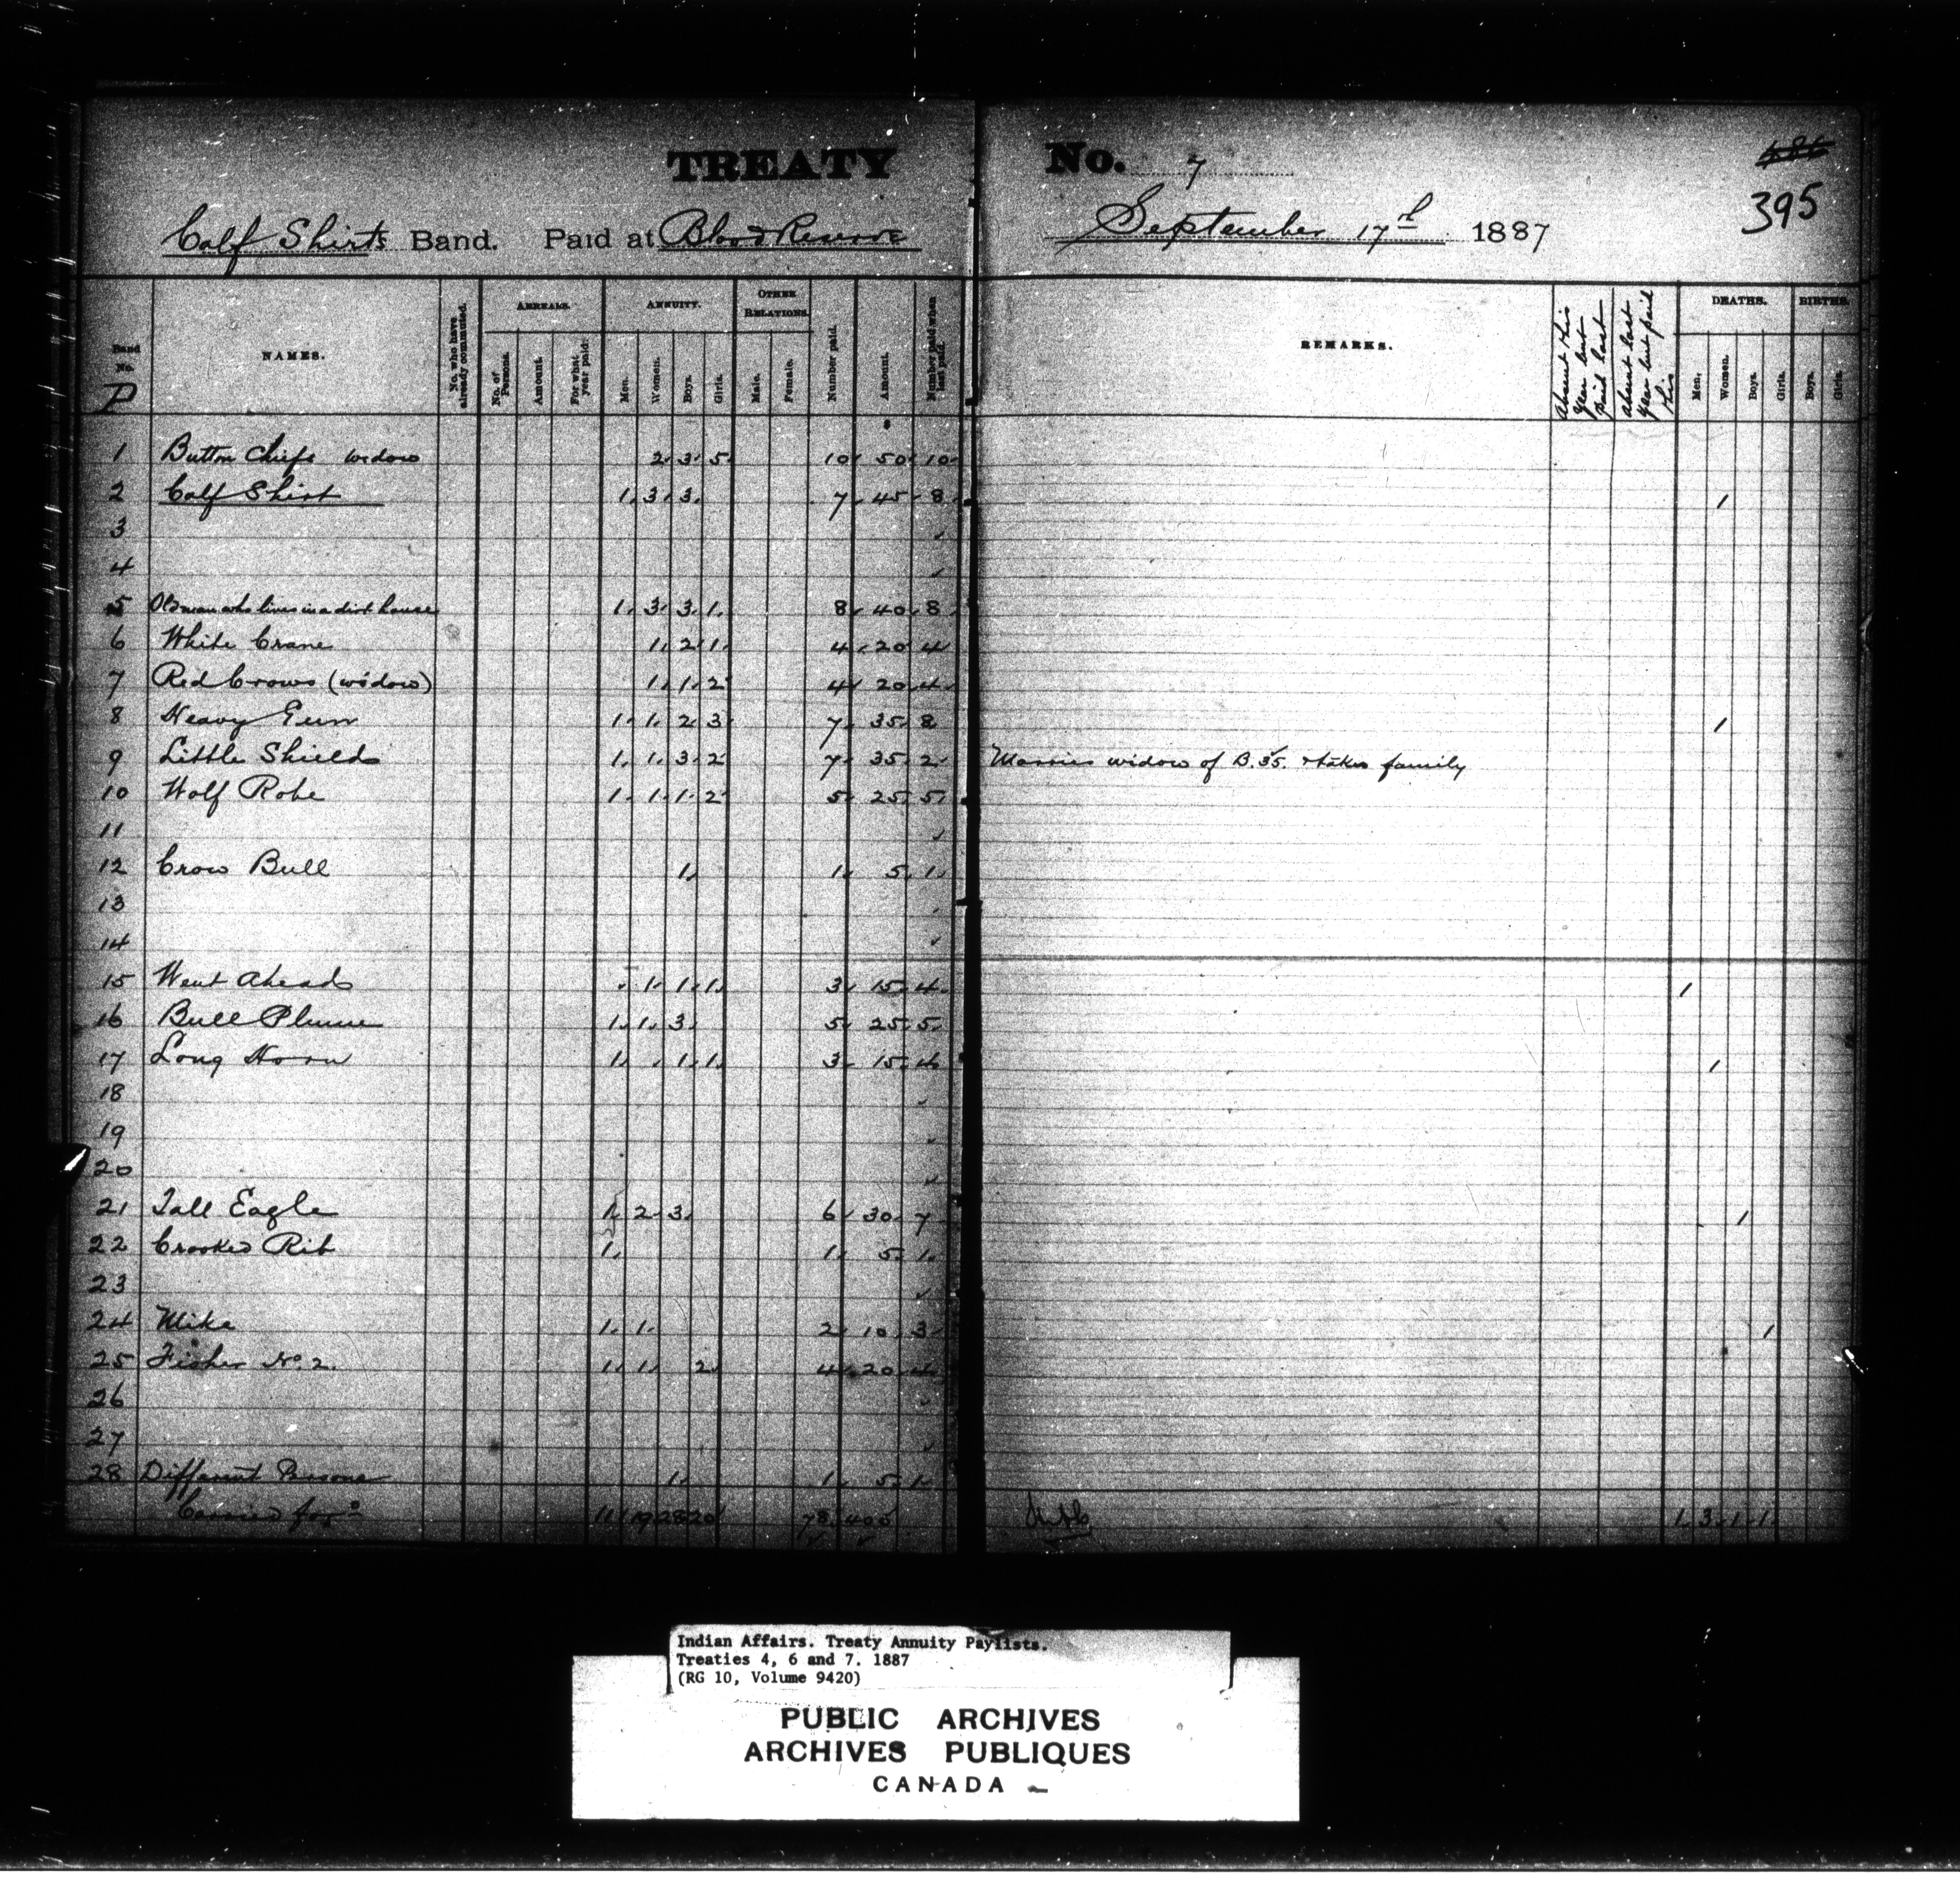 TREATY No. 7
486
395
Calf Shirts Band. Paid at Blood Reserve September 17th 1887
Band No. NAMES. No. who have already commuted. ARREARS. ANNUITY. OTHER RELATIONS. Number paid. Amount. Number paid when last paid. REMARKS. Absent this year but paid last Absent last year but paid this DEATHS. BIRTHS.
P No. of Persons. Amount. For what year paid. Men. Women. Boys. Girls. Male. Female. Men. Women. Boys. Girls. Boys. Girls.
1 Button Chiefs widow 2 3 5 10 50 10
2 Calf Shirt 1 3 3 7 45 8 1
3
4
5 Old man who lives in a dirt house 1 3 3 1 8 40 8
6 White Crane 1 2 1 4 20 4
7 Red Crows (widow) 1 1 2 4 20 4
8 Heavy Gun 1 1 2 3 7 35 8 1
9 Little Shield 1 1 3 2 7 35 2 Marries widow of B.35. & takes family
10 Wolf Robe 1 1 1 2 5 25 5
11
12 Crow Bull 1 1 5 1
13
14
15 Went Ahead 1 1 1 3 15 4 1
16 Bull Plume 1 1 3 5 25 5
17 Long Horn 1 1 1 3 15 4 1
18
19
20
21 Tall Eagle 1 2 3 6 30 7 1
22 Crooked Rib 1 1 5 1
23
24 Mike 1 1 2 10 3 1
25 Fisher No. 2. 1 1 2 4 20 4
26
27
28 Different Persons 1 1 5 1
Carried for'd 11 19 28 20 78 400 1 3 1 1
Indian Affairs. Treaty Annuity Paylists.
Treaties 4, 6 and 7. 1887
(RG 10, Volume 9420)
PUBLIC ARCHIVES
ARCHIVES PUBLIQUES
CANADA